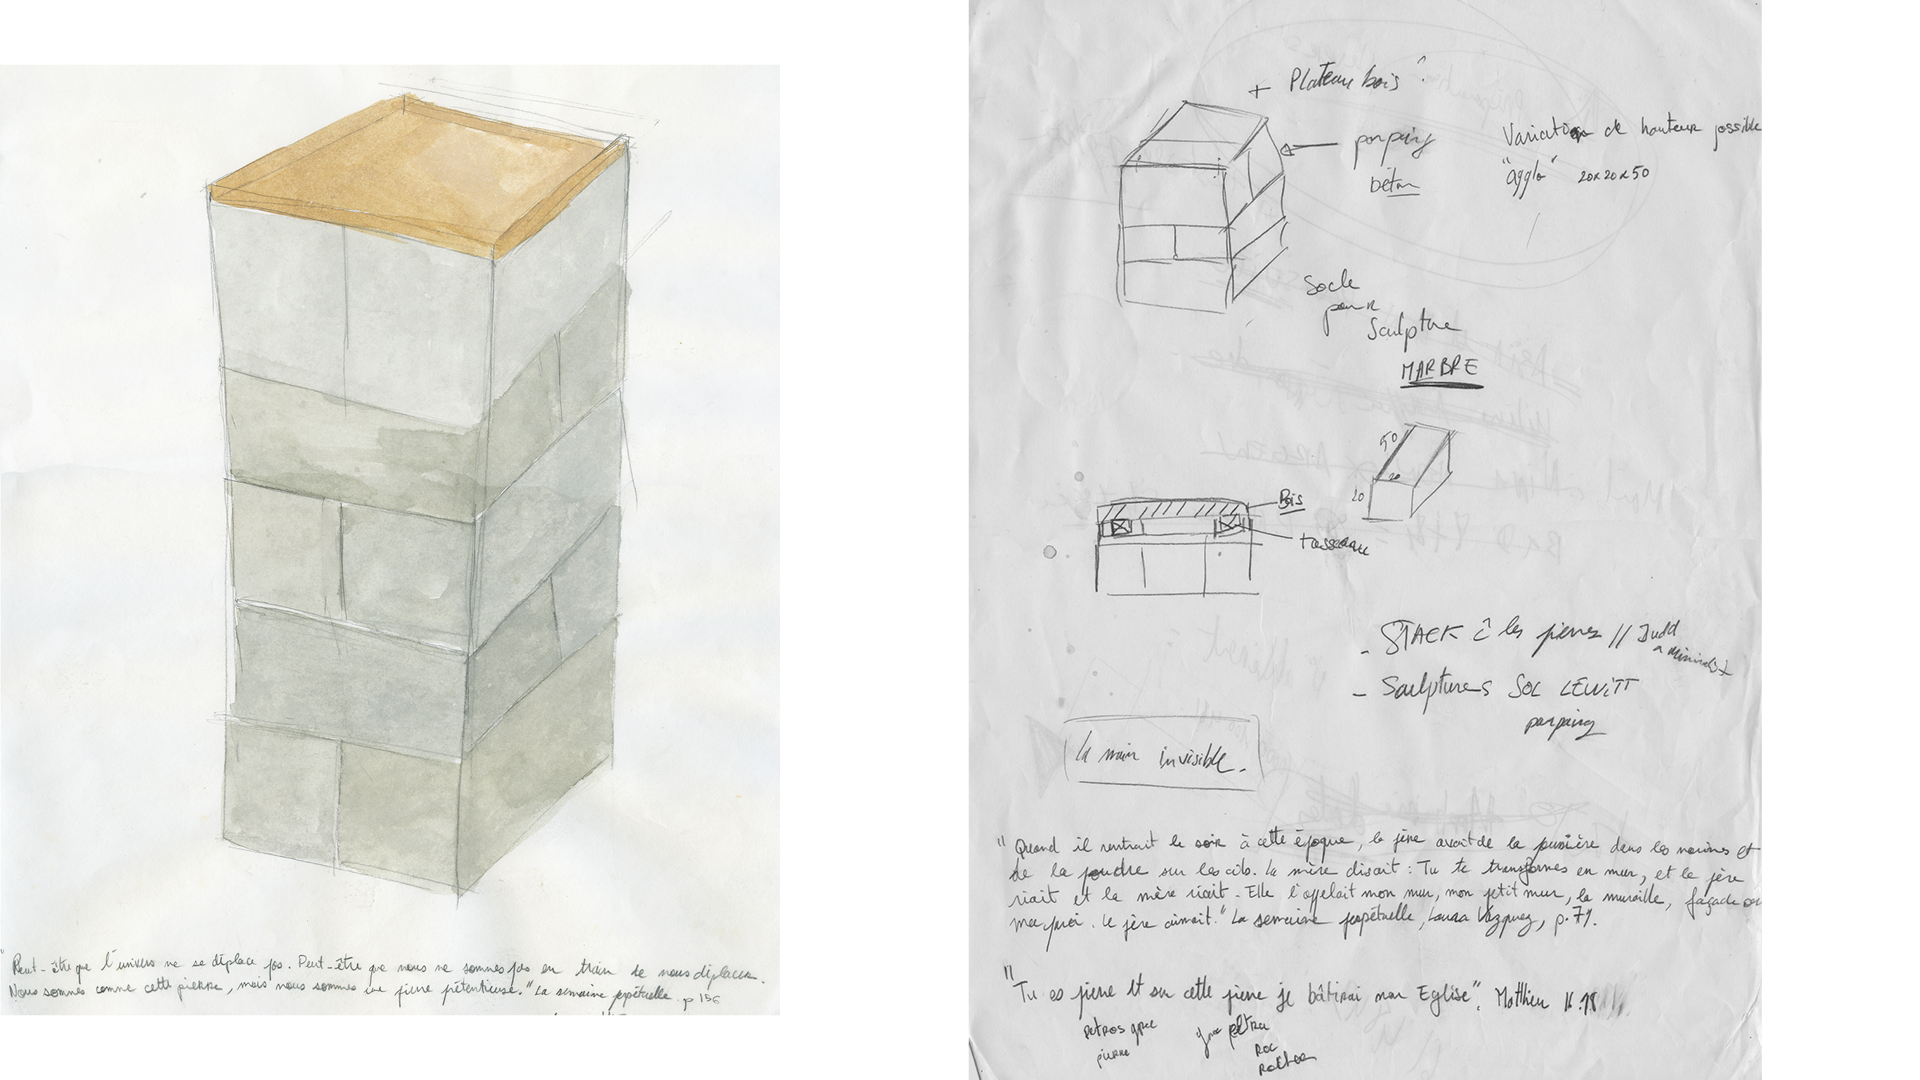 "Peut-être que l'univers ne se déplace pas. Peut-être que nous ne sommes pas en train de nous déplacer.
Nous sommes comme cette pierre, mais nous sommes une pierre prétentieuse." La semaine perpétuelle. p 156
+ Plateau bois
parping
béton
Variation de hauteur possible
"agglo" 20x20x50
Socle
pour
Sculpture
MARBRE
50
20
20
Bis
tasseau
- STACK les pierres // Judd
- Sculptures SOL LEWITT
parping
la main invisible.
"Quand il rentrait le soir à cette époque, le père avait de la poussière dans les narines et
de la poudre sur les cils. La mère disait : Tu te transformes en mur, et le père
riait et la mère riait. Elle l'appelait mon mur, mon petit mur, la muraille, façade ou
ma paroi. Le père aimait." La semaine perpétuelle, Laura Vazquez, p.79.
"Tu es pierre et sur cette pierre je bâtirai mon Eglise". Matthieu 16.18
petros grec
pierre
petra
roc
rocher